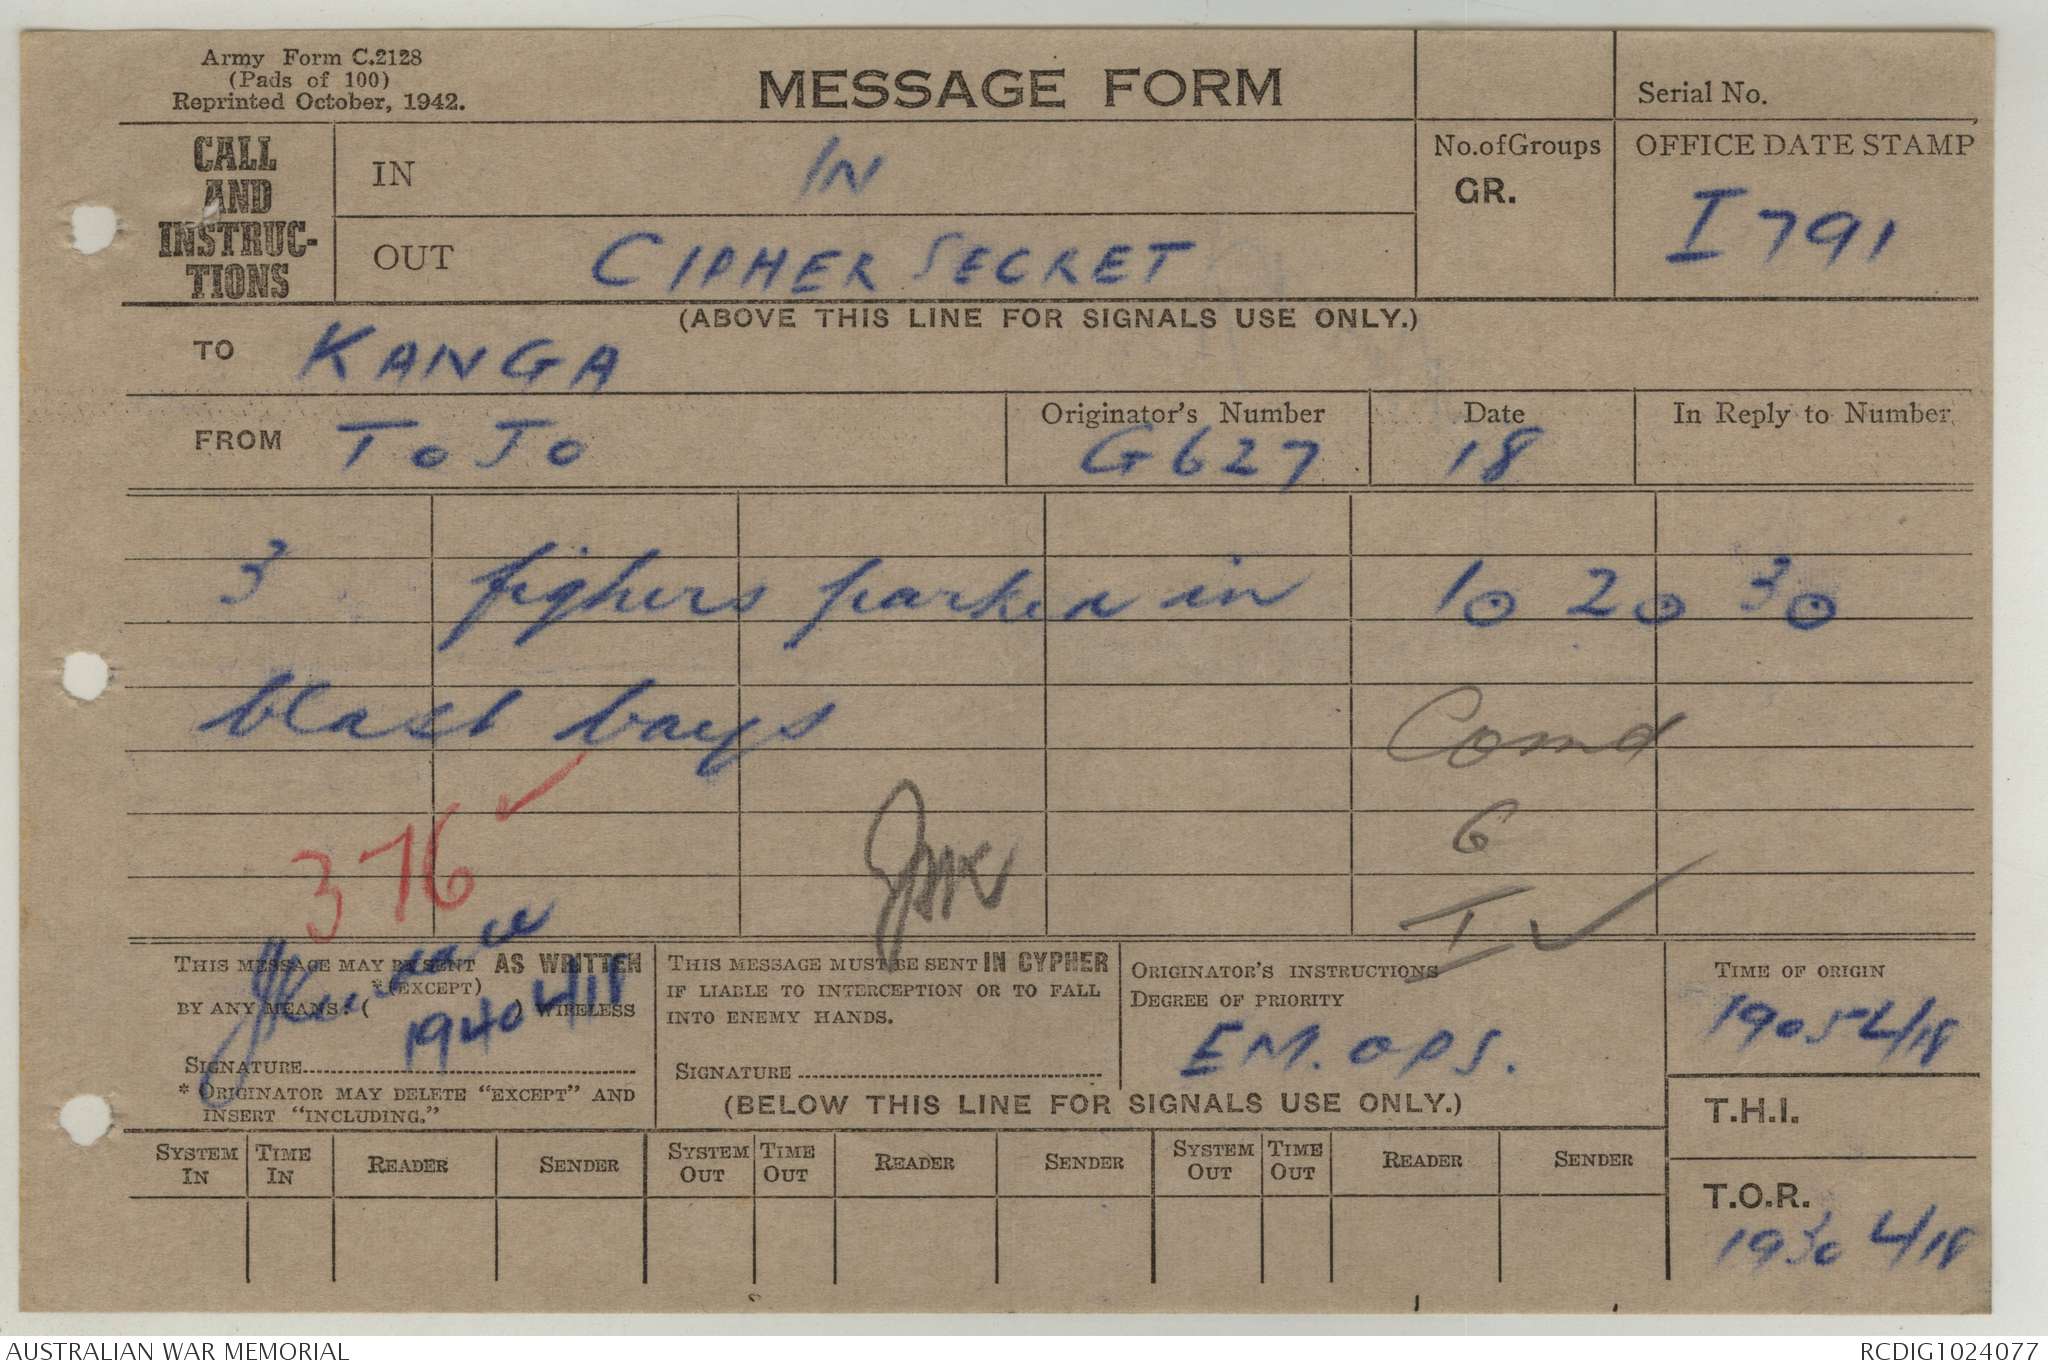 Army Form C.2128
(Pads of 100)
Reprinted October, 1942.
MESSAGE FORM
Serial No.
CALL
AND
INSTRUC-
TIONS
IN
IN
No. of Groups
GR.
OFFICE DATE STAMP
I 791
OUT
CIPHER SECRET
(ABOVE THIS LINE FOR SIGNALS USE ONLY.)
TO KANGA
FROM TOJO
Originator's Number
G627
Date
18
In Reply to Number
3 fighers parked in 10 20 30
blast bays
Comd
G
I
376
THIS MESSAGE MAY BE SENT AS WRITTEN
*(EXCEPT)
BY ANY MEANS. ( ) WIRELESS
1940 4/18
SIGNATURE
* ORIGINATOR MAY DELETE "EXCEPT" AND
INSERT "INCLUDING."
THIS MESSAGE MUST BE SENT IN CYPHER
IF LIABLE TO INTERCEPTION OR TO FALL
INTO ENEMY HANDS.
SIGNATURE
ORIGINATOR'S INSTRUCTIONS
DEGREE OF PRIORITY
EM. OPS.
(BELOW THIS LINE FOR SIGNALS USE ONLY.)
TIME OF ORIGIN
1905 4/18
T.H.I.
T.O.R.
1930 4/18
SYSTEM IN
TIME IN
READER
SENDER
SYSTEM OUT
TIME OUT
READER
SENDER
SYSTEM OUT
TIME OUT
READER
SENDER
AUSTRALIAN WAR MEMORIAL
RCDIG1024077